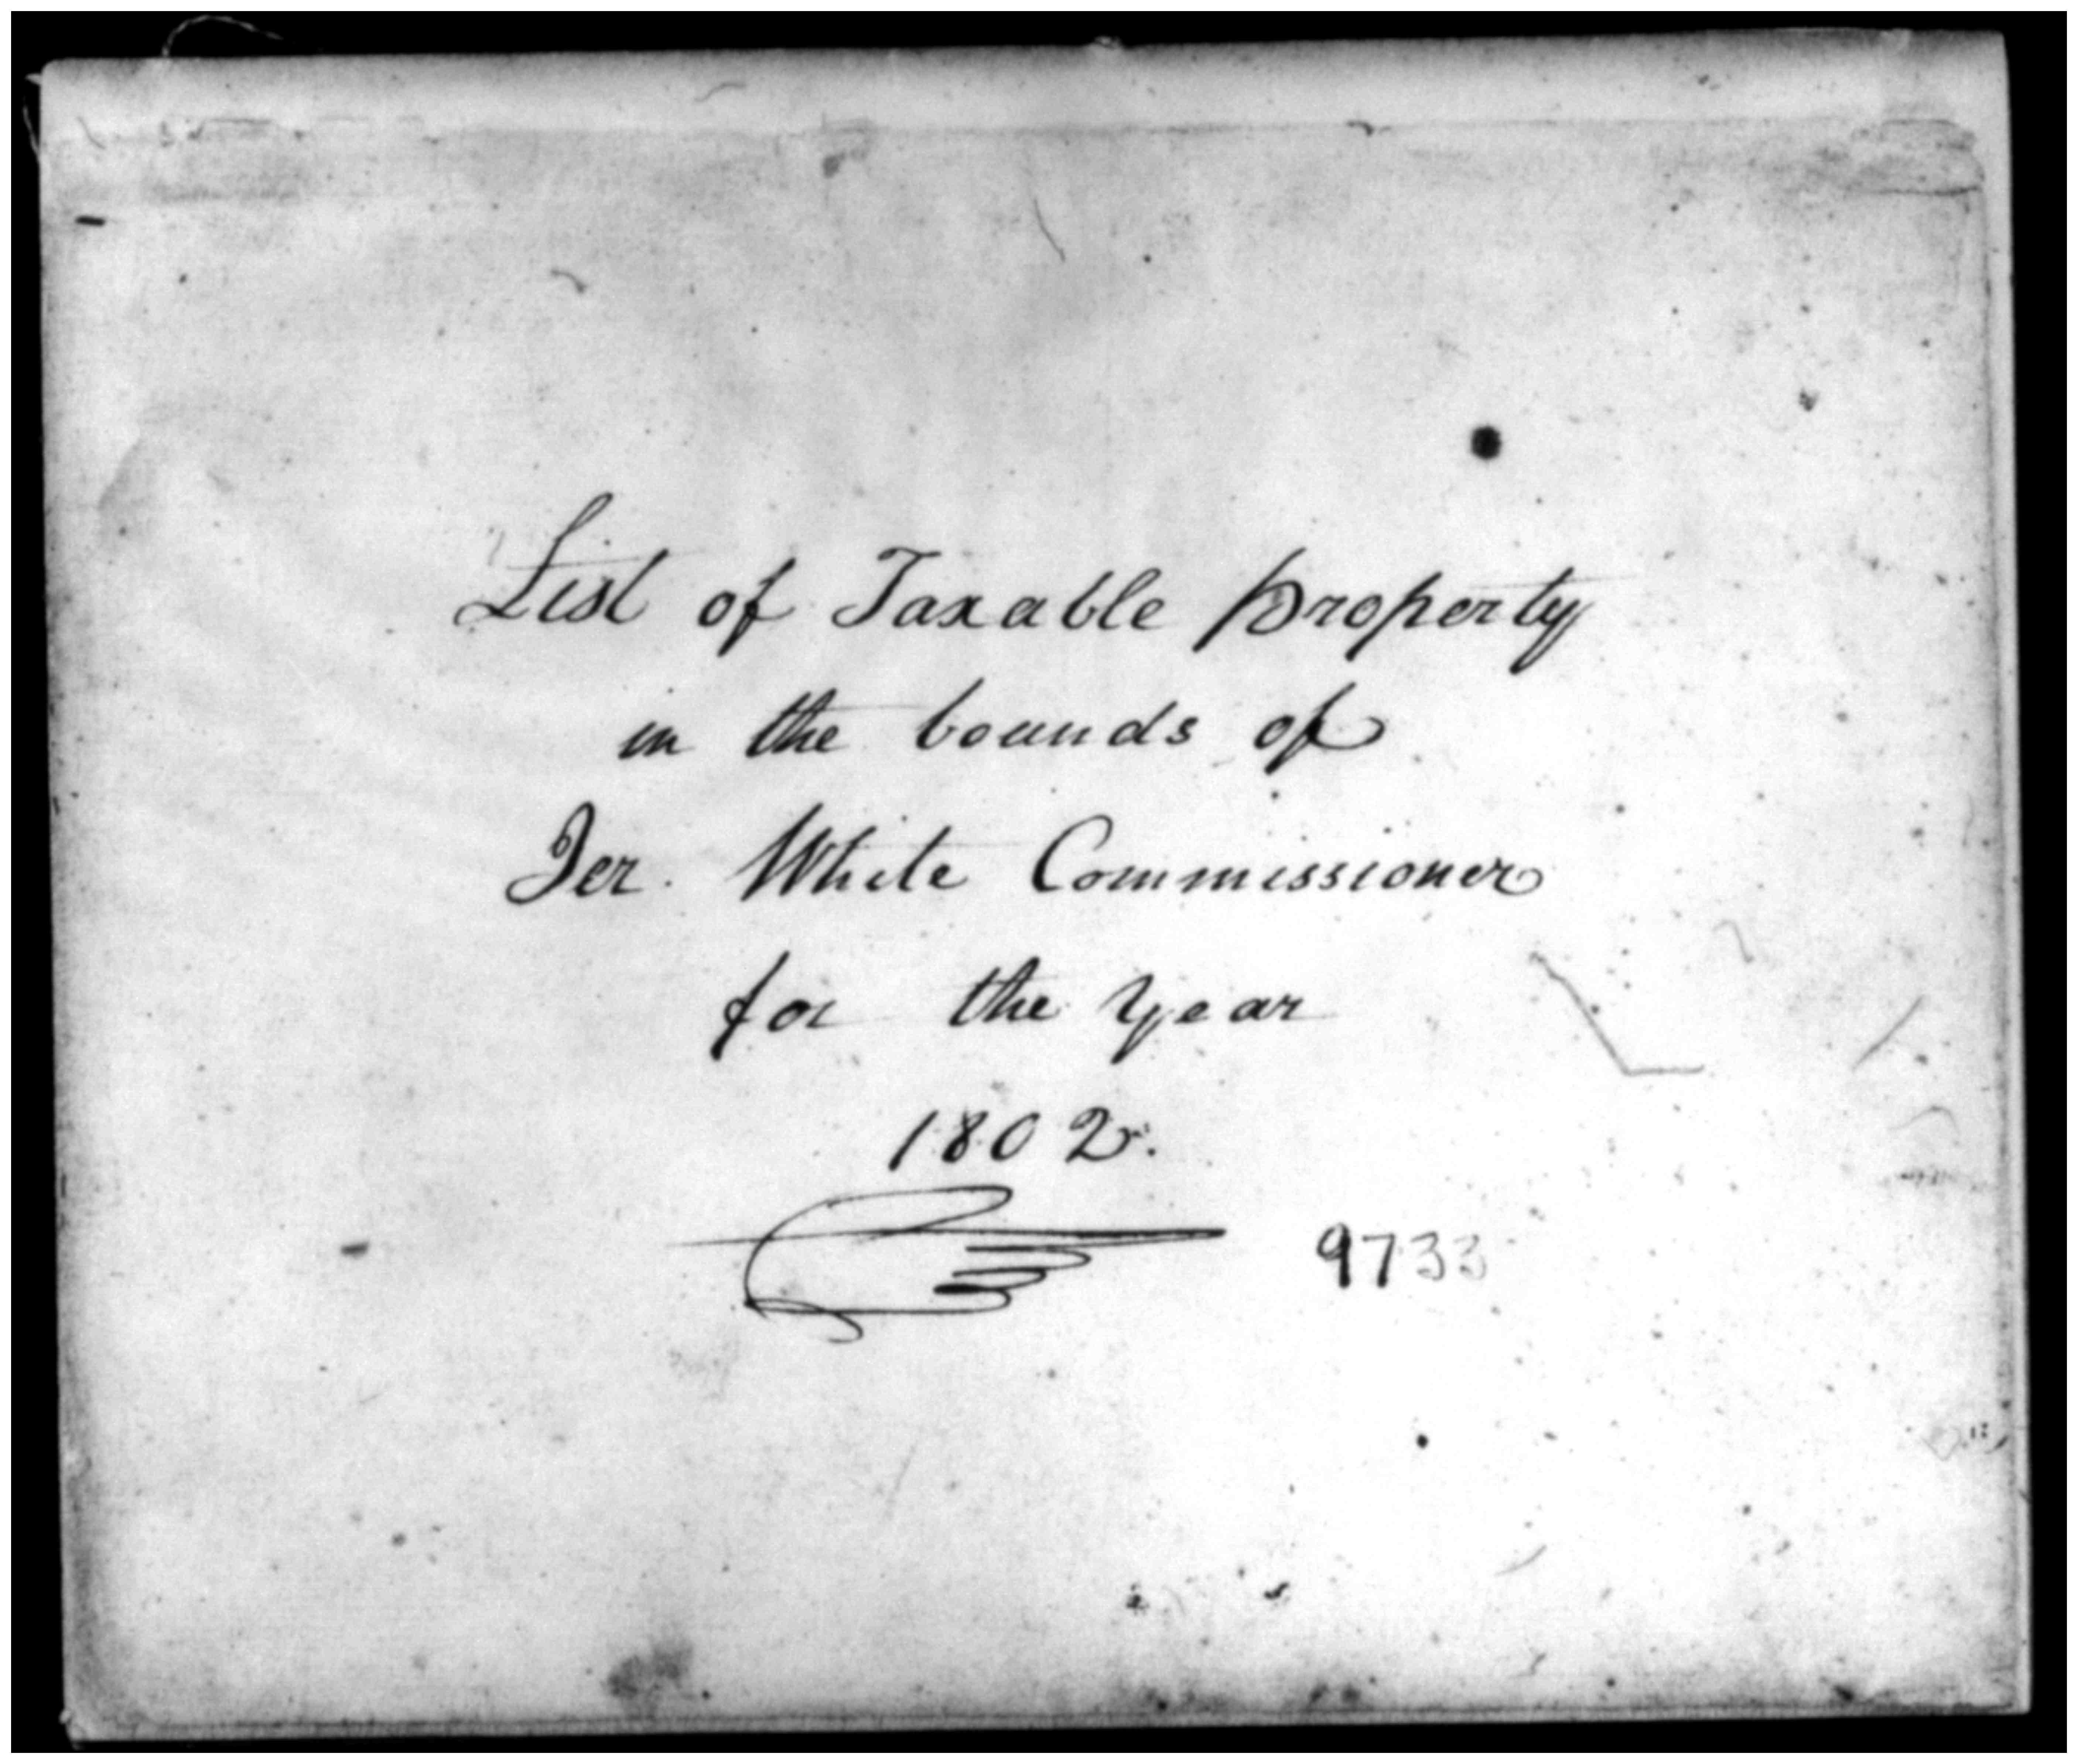 List of Taxable property
in the bounds of
Jer. White Commissioner
for the year
1802.
9733